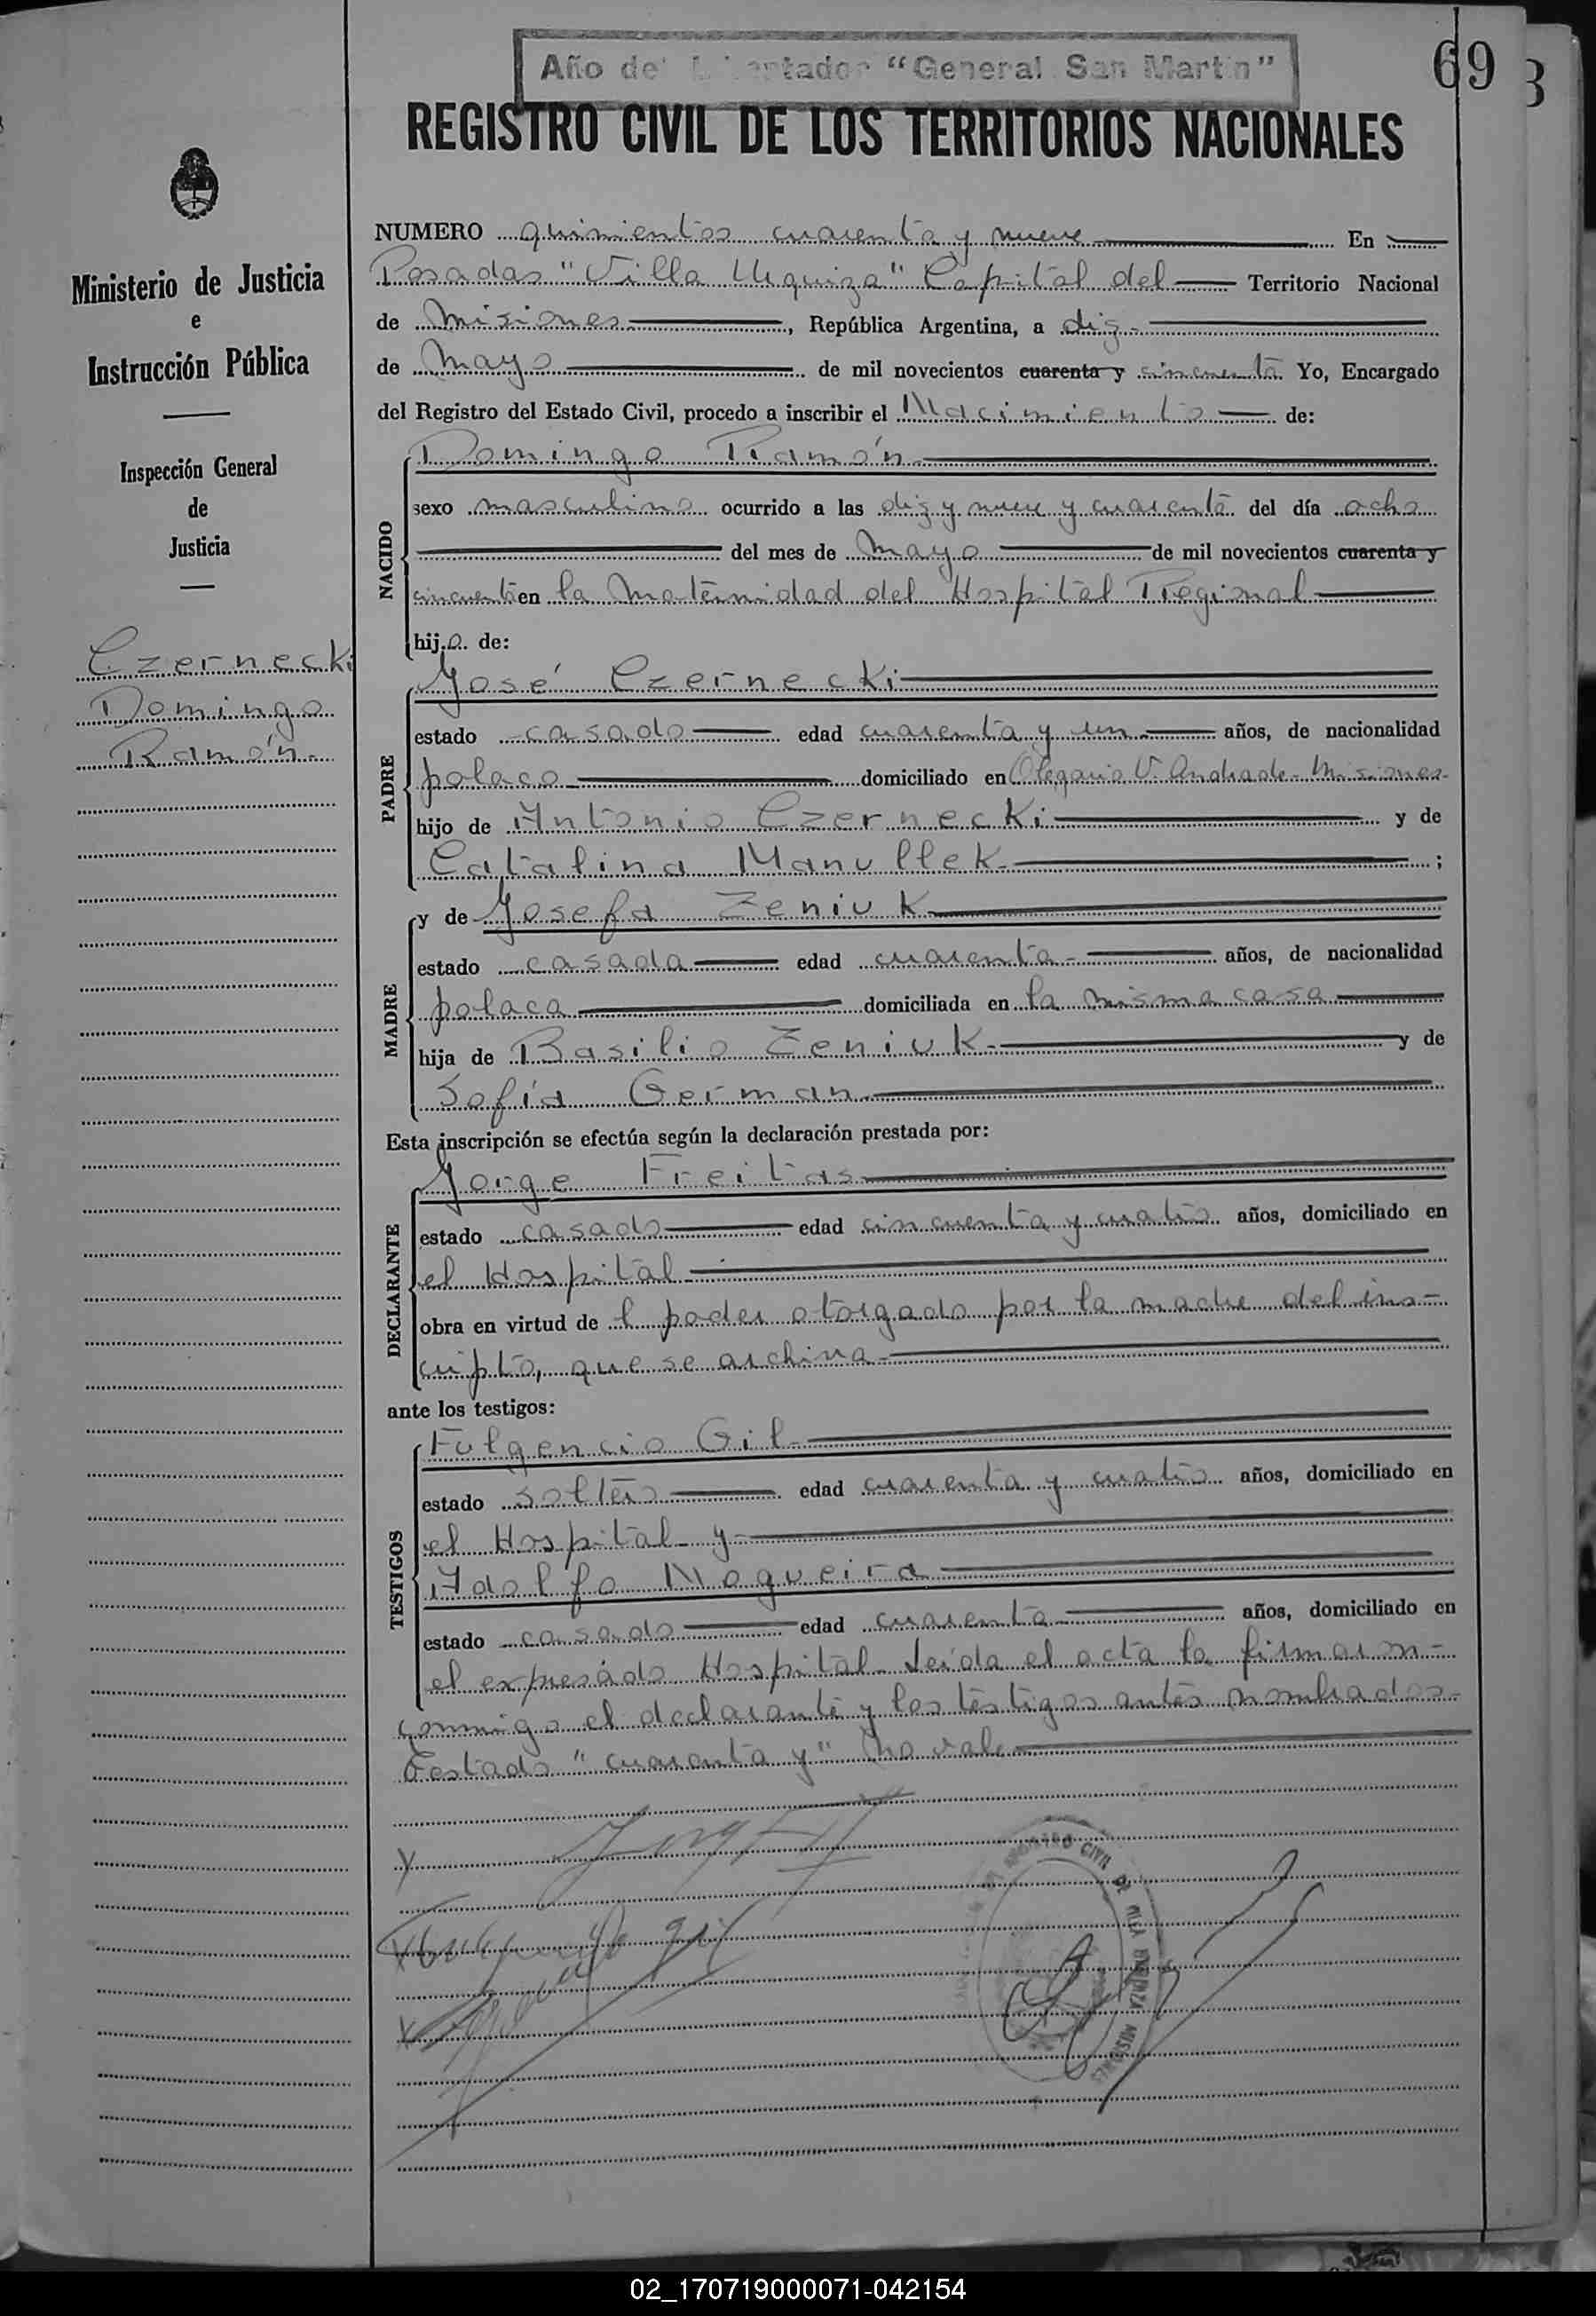 Año del Libertador "General San Martín"
69
3
REGISTRO CIVIL DE LOS TERRITORIOS NACIONALES
Ministerio de Justicia
e
Instrucción Pública
Inspección General
de
Justicia
Czernecki
Domingo
Ramón.
NUMERO quinientos cuarenta y nueve En
Posadas "Villa Urquiza" Capital del Territorio Nacional
de Misiones, República Argentina, a diez
de Mayo de mil novecientos cuarenta y cincuenta Yo, Encargado
del Registro del Estado Civil, procedo a inscribir el Nacimiento de:
NACIDO
Domingo Ramón
sexo masculino ocurrido a las diez y nueve y cuarenta del día ocho
del mes de Mayo de mil novecientos cuarenta y
cincuenta en la Maternidad del Hospital Regional
hijo de:
PADRE
José Czernecki
estado casado edad cuarenta y un años, de nacionalidad
polaco domiciliado en Olegario V. Andrade - Misiones
hijo de Antonio Czernecki y de
Catalina Manullek ;
MADRE
y de Josefa Zeniuk
estado casada edad cuarenta años, de nacionalidad
polaca domiciliada en la misma casa
hija de Basilio Zeniuk y de
Sofía German
Esta inscripción se efectúa según la declaración prestada por:
DECLARANTE
Jorge Freitas
estado casado edad cincuenta y cuatro años, domiciliado en
el Hospital
obra en virtud de l poder otorgado por la madre del ins-
cripto, que se archiva
ante los testigos:
TESTIGOS
Fulgencio Gil
estado soltero edad cuarenta y cuatro años, domiciliado en
el Hospital y
Adolfo Nogueira
estado casado edad cuarenta años, domiciliado en
el expresado Hospital. Leída el acta la firmaron
conmigo el declarante y los testigos antes nombrados
Testado "cuarenta y" no vale
REGISTRO CIVIL DE VILLA URQUIZA MISIONES
02_170719000071-042154